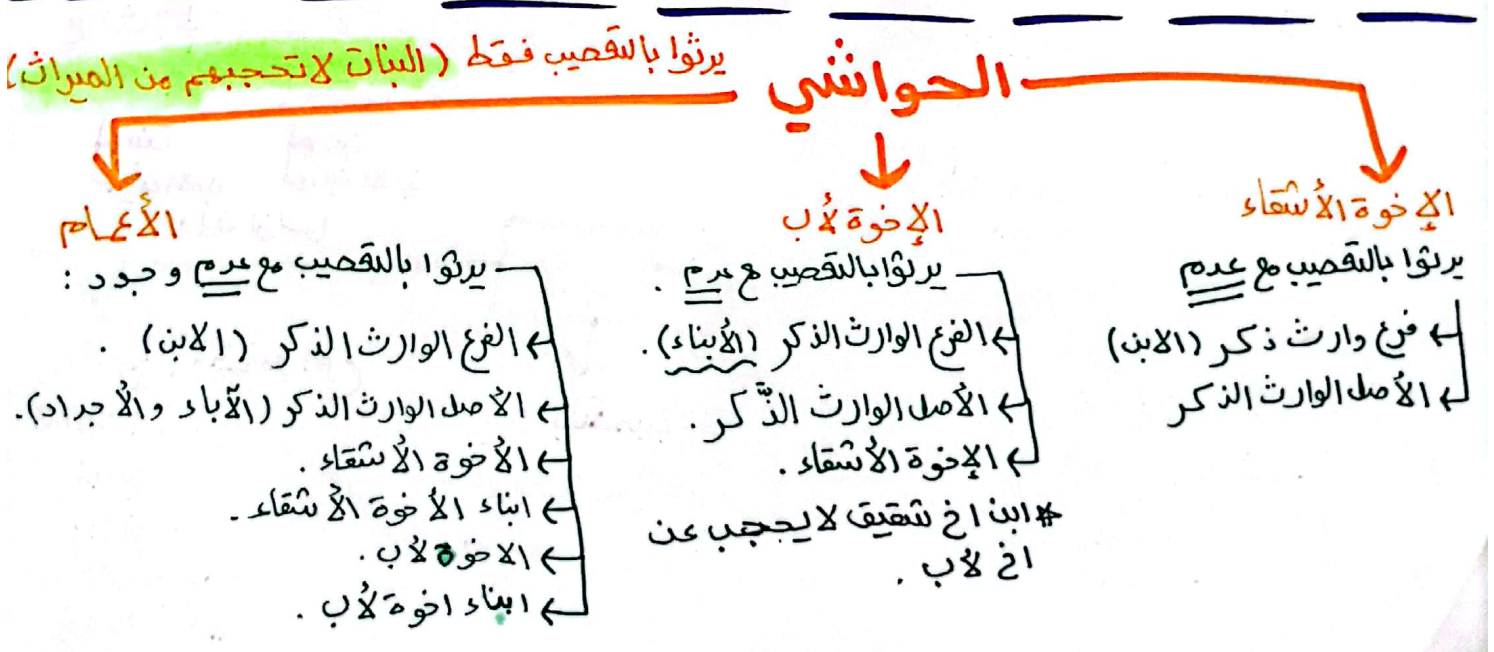 الحواشي يرثوا بالتعصيب فقط (البنات لا تحجبهم من الميراث)
الإخوة الأشقاء
يرثوا بالتعصيب مع عدم
فرع وارث ذكر (الابن)
الأصل الوارث الذكر
الإخوة لأب
يرثوا بالتعصيب مع عدم .
الفرع الوارث الذكر (الأبناء).
الأصل الوارث الذَّكر.
الإخوة الأشقاء.
* ابن اخ شقيق لا يحجب عن
اخ لأب .
الأعمام
يرثوا بالتعصيب مع عدم وجود :
الفرع الوارث الذكر (الابن) .
الأصل الوارث الذكر (الآباء والأجداد).
الأخوة الأشقاء .
ابناء الأخوة الأشقاء .
الاخوة لأب .
ابناء اخوة لأب .